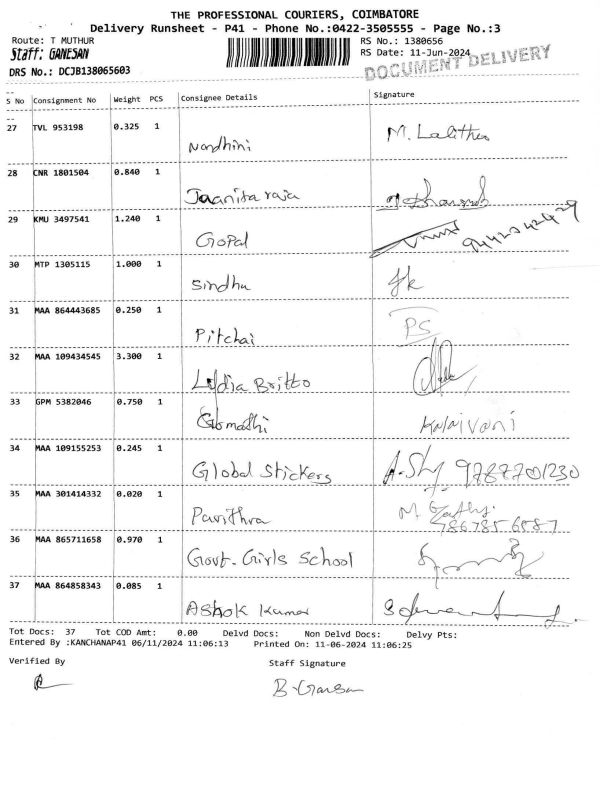 THE PROFESSIONAL COURIERS, COIMBATORE
Delivery Runsheet - P41 - Phone No.:0422-3505555 - Page No.:3
Route: T MUTHUR RS No.: 1380656
Staff: GANESAN RS Date: 11-Jun-2024
DRS No.: DCJB138065603 DOCUMENT DELIVERY
S No Consignment No Weight PCS Consignee Details Signature
27 TVL 953198 0.325 1
Nandhini M. Lalitha
28 CNR 1801504 0.840 1
Jaanita raja
29 KMU 3497541 1.240 1
Gopal 9442042429
30 MTP 1305115 1.000 1
Sindhu
31 MAA 864443685 0.250 1
Pitchai PS
32 MAA 109434545 3.300 1
Lydia Britto
33 GPM 5382046 0.750 1
Gomathi Kalaivani
34 MAA 109155253 0.245 1
Global Stickers 9787701230
35 MAA 301414332 0.020 1
Pavithra M.
36 MAA 865711658 0.970 1
Govt. Girls School
37 MAA 864858343 0.085 1
Ashok Kumar
Tot Docs: 37 Tot COD Amt: 0.00 Delvd Docs: Non Delvd Docs: Delvy Pts:
Entered By :KANCHANAP41 06/11/2024 11:06:13 Printed On: 11-06-2024 11:06:25
Verified By Staff Signature